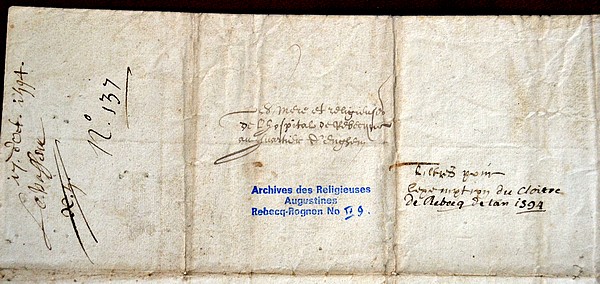 17 d'oct. 1594.
No. 137
Les Mere et religieuses
de l'hospital de Rebecque
au quartier d'Enghien
Archives des Religieuses
Augustines
Rebecq-Rognon No II 9.
Tiltres pour
l'exemption du Cloitre
de Rebecq de l'an 1594